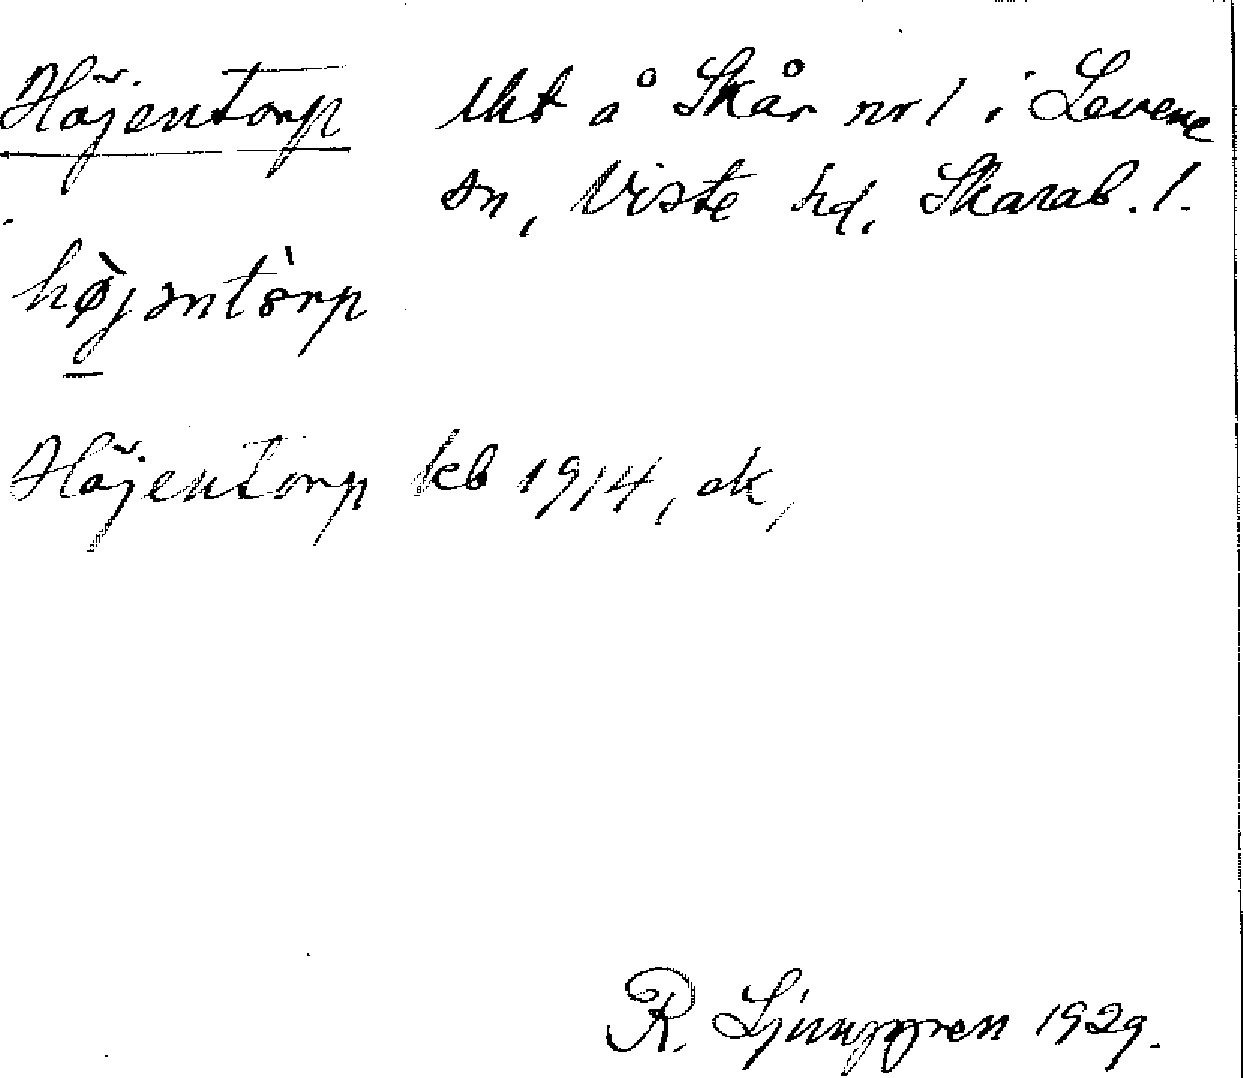 Höjentorp lht å Skår nr 1 i Levene
sn, Viste hd, Skarab. l.
hø̀jəntòrp
Höjentorp kb 1914, ek,
R. Ljunggren 1929.